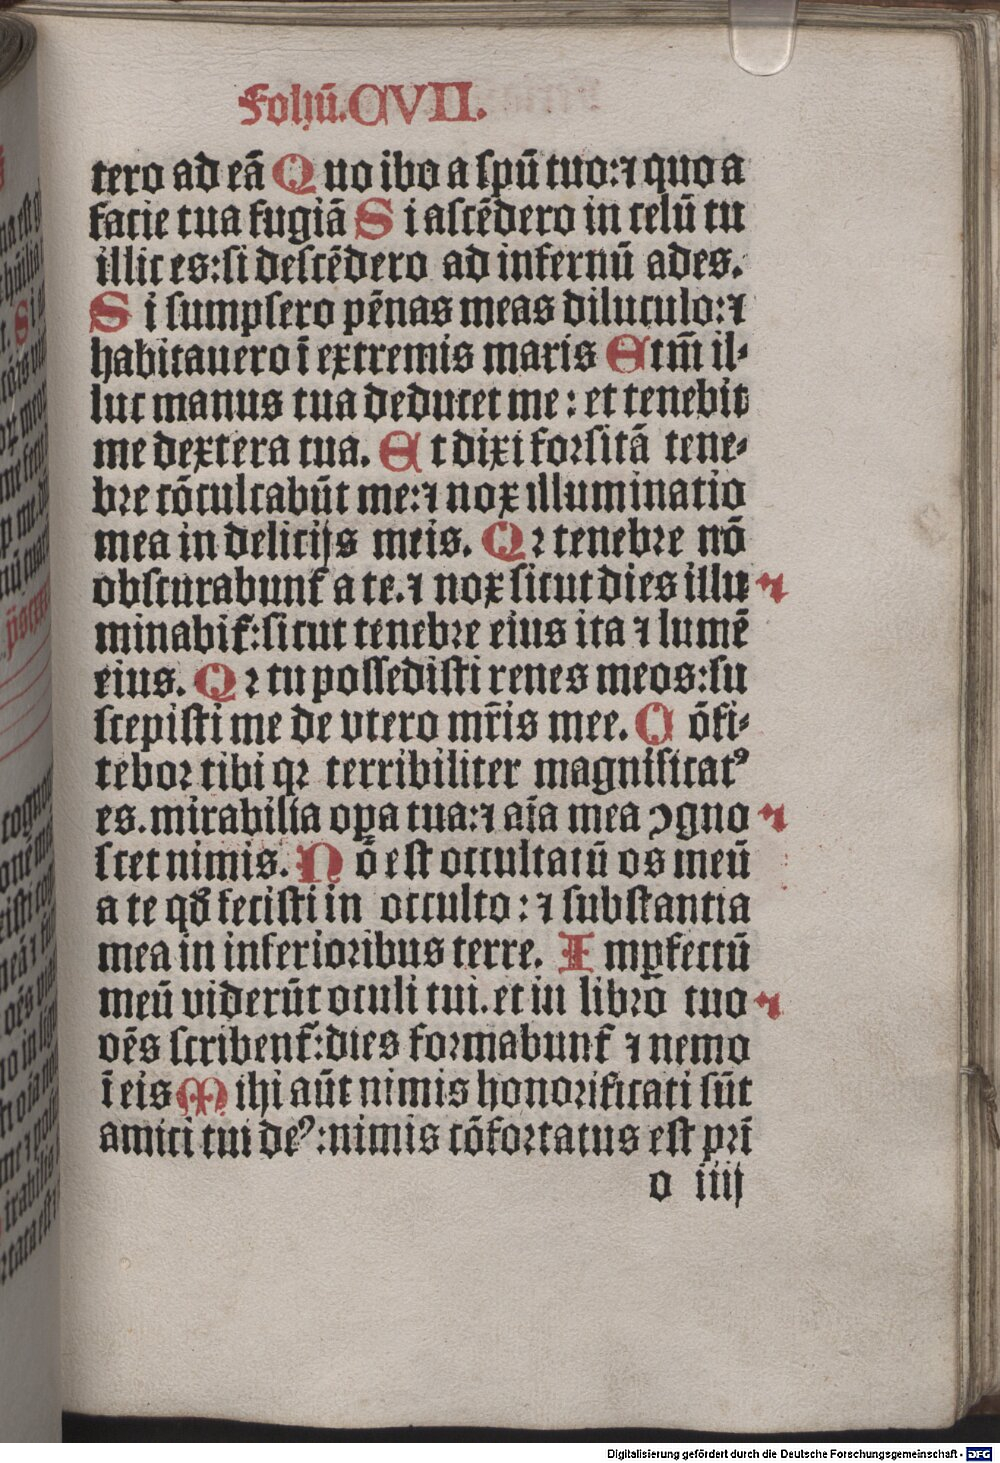 Foliū.CVII.
tero ad eā Quo ibo a spū tuo:⁊ quo a
facie tua fugiā Si ascēdero in celū tu
illic es:si descēdero ad infernū ades.
Si sumpsero pēnas meas diluculo:⁊
habitauero ī extremis maris Etm̄ il⸗
luc manus tua deducet me: et tenebit
me dextera tua. Et dixi forsitā tene⸗
bre cōculcabūt me:⁊ nox illuminatio
mea in delicijs meis. Qꝛ tenebre nō
obscurabunt᷑ a te.⁊ nox sicut dies illu
minabit᷑:sicut tenebre eius ita ⁊ lumē
eius. Qꝛ tu possedisti renes meos:su
scepisti me de vtero mr̄is mee. Cōfi⸗
tebor tibi qꝛ terribiliter magnificatꝰ
es.mirabilia oꝑa tua:⁊ aīa mea ꝯgno
scet nimis. Nō est occultatū os meū
a te qđ fecisti in occulto: ⁊ substantia
mea in inferioribus terre. Imꝑfectū
meū viderūt oculi tui.et in libro tuo
oēs scribent᷑:dies formabunt᷑ ⁊ nemo
ī eis Mihi aūt nimis honorificati sūt
amici tui deꝰ:nimis cōfortatus est pri̅
o iiij
Digitalisierung gefördert durch die Deutsche Forschungsgemeinschaft - DFG